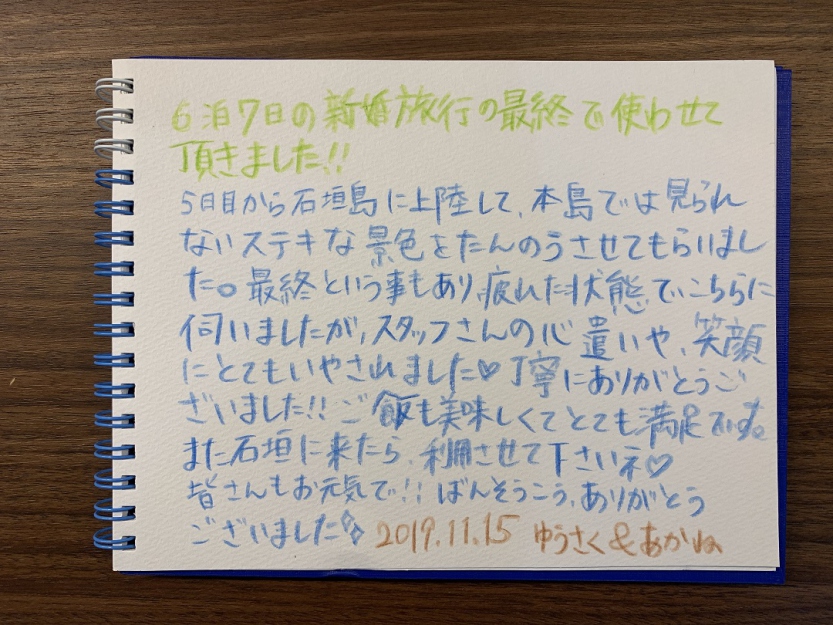 6泊7日の新婚旅行の最終で使わせて
頂きました!!
5日目から石垣島に上陸して、本島では見られ
ないステキな景色をたんのうさせてもらいまし
た。最終という事もあり、疲れた状態でこちらに
伺いましたが、スタッフさんの心遣いや、笑顔
にとてもいやされました♡丁寧にありがとうご
ざいました!!ご飯も美味しくてとても満足です。
また石垣に来たら、利用させて下さいネ♡
皆さんもお元気で!!ばんそうこう、ありがとう
ございました 2019.11.15 ゆうさく&あかね